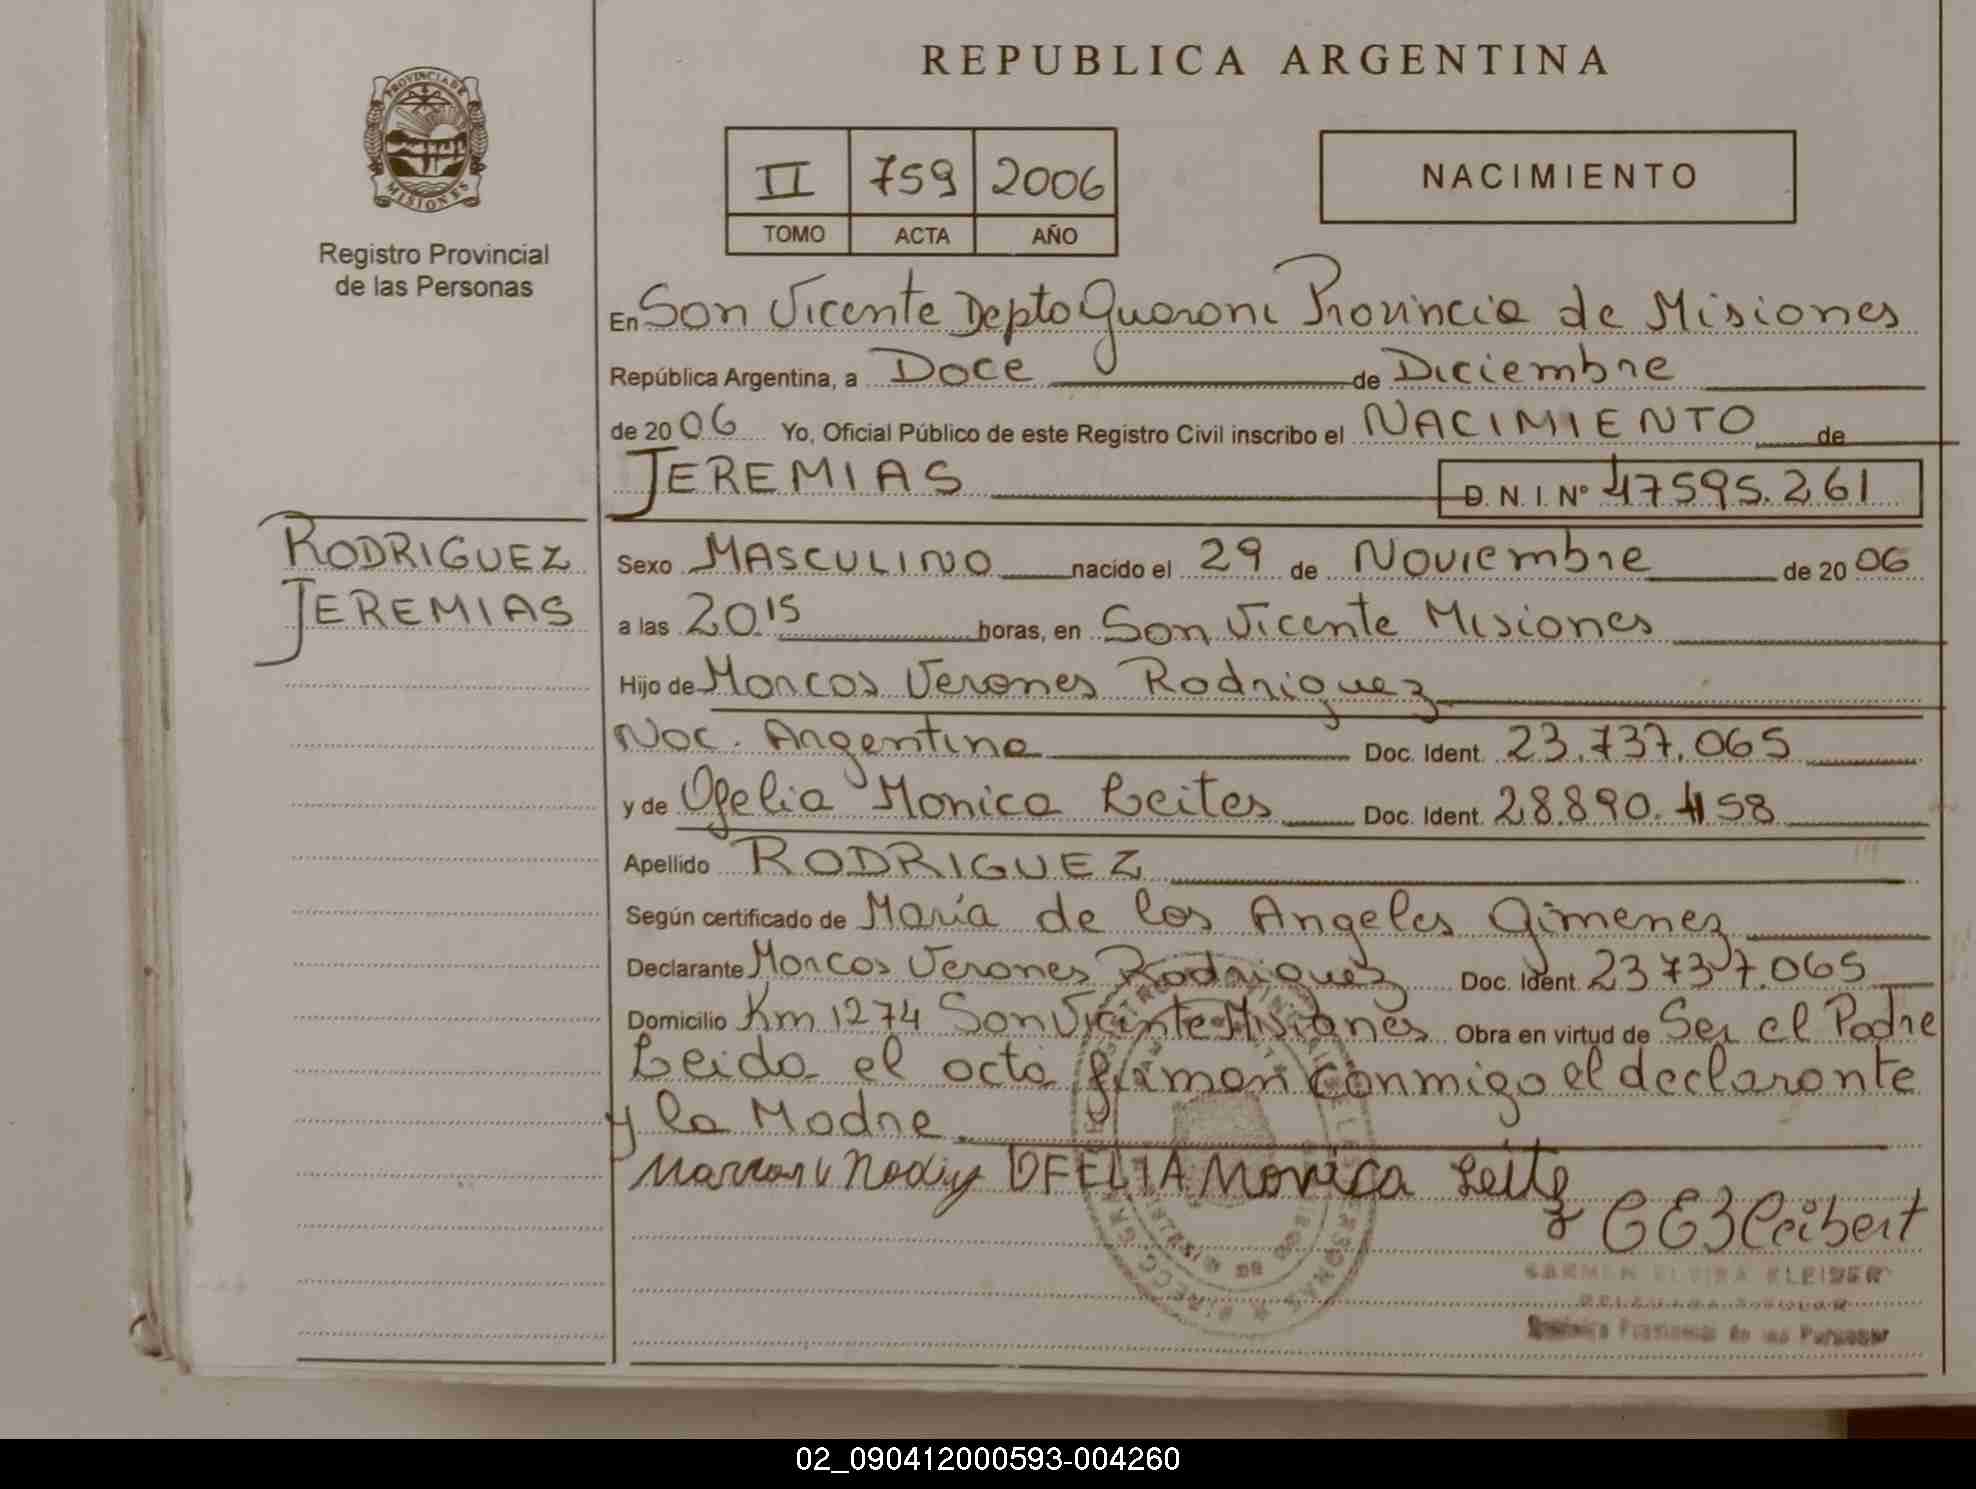 PROVINCIA DE
MISIONES
Registro Provincial
de las Personas
REPUBLICA ARGENTINA
II 759 2006
TOMO ACTA AÑO
NACIMIENTO
En San Vicente Depto Guarani Provincia de Misiones
República Argentina, a Doce de Diciembre
de 2006 Yo, Oficial Público de este Registro Civil inscribo el NACIMIENTO de
JEREMIAS D. N. I. Nº 47595.261
RODRIGUEZ
JEREMIAS
Sexo MASCULINO nacido el 29 de Noviembre de 2006
a las 20.15 horas, en San Vicente Misiones
Hijo de Marcos Verones Rodriguez
Nac. Argentina Doc. Ident. 23.737.065
y de Ofelia Monica Leites Doc. Ident. 28.890.458
Apellido RODRIGUEZ
Según certificado de María de los Angeles Gimenez
Declarante Marcos Verones Rodriguez Doc. Ident. 23737.065
Domicilio Km 1274 San Vicente Misiones Obra en virtud de Ser el Padre
Leida el acta firman conmigo el declarante
y la Madre
OFELIA Monica Leite
CARMEN ELVIRA KLEIBER
02_090412000593-004260